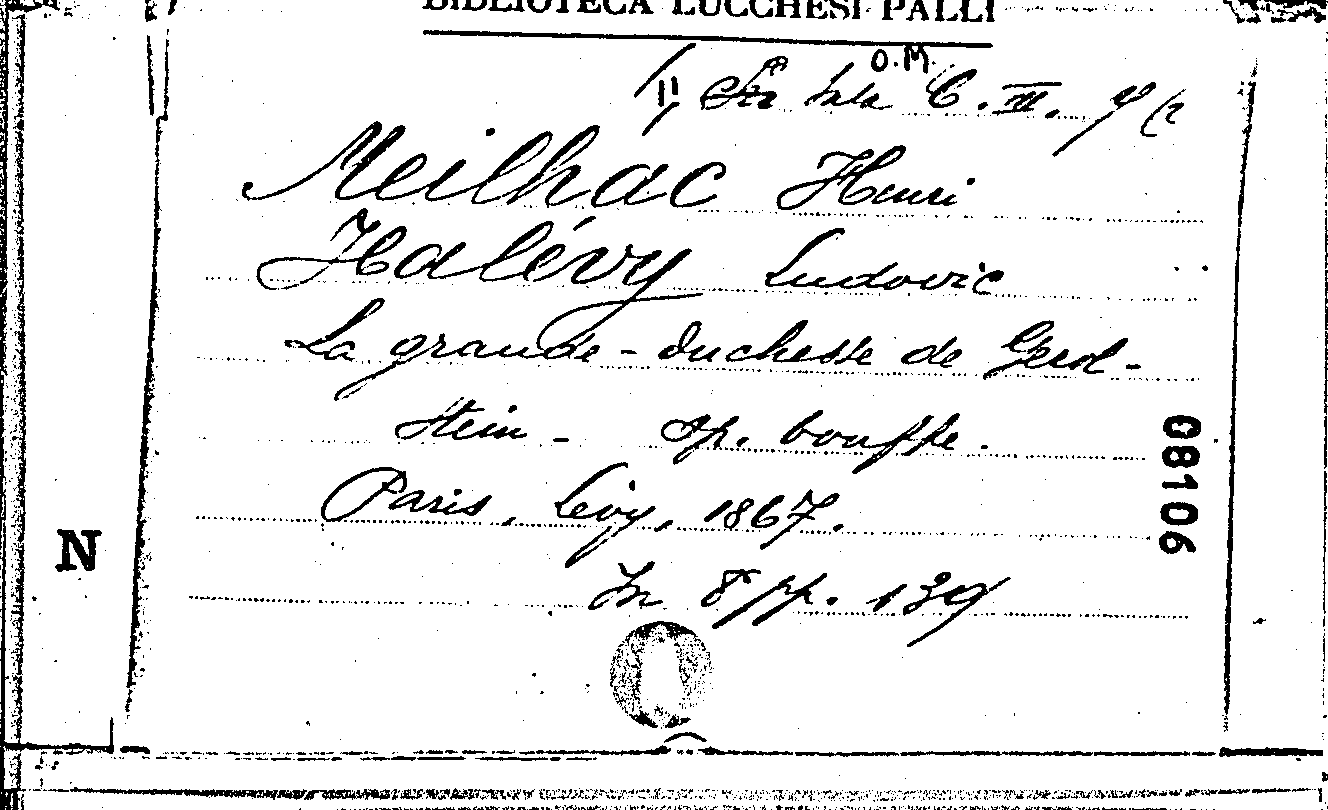 BIBLIOTECA LUCCHESI-PALLI
O.M.
Sala C. III.
Meilhac Henri
Halévy Ludovic
La grande-duchesse de Gerol-
stein - op. bouffe.
Paris, Lévy, 1867.
In 8° pp. 139
08106
N